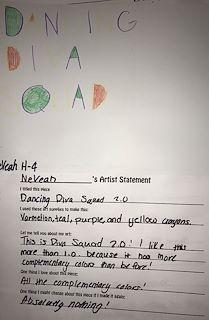 DANCING
DIVA
SQUAD
Veah H-4
NeVeah 's Artist Statement
I titled this piece
Dancing Diva Squad 2.0
I used these art supplies to make this:
Varmelion, teal, purple, and yellow crayons.
Let me tell you about my art:
This is Diva Squad 2.0! I like this
more than 1.0 because it has more
complementary colors than before!
One thing I love about this piece:
All the complementary colors!
One thing I might change about this piece if I made it again:
Absolutely nothing!